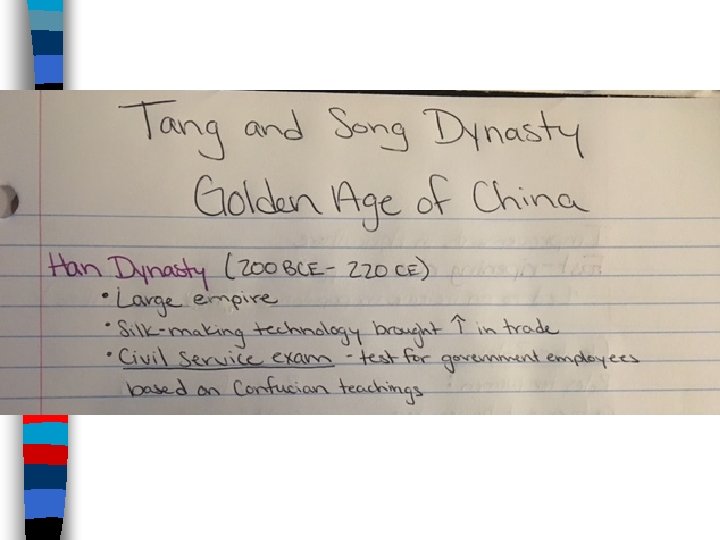 Tang and Song Dynasty
Golden Age of China
Han Dynasty (200 BCE - 220 CE)
• Large empire
• Silk-making technology brought ↑ in trade
• Civil service exam - test for government employees
based on Confucian teachings